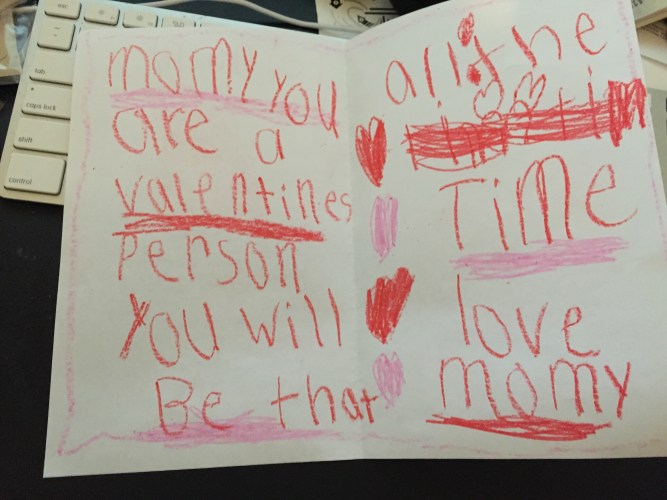 momy you
are a
valentines
Person
You will
Be that
all the
Time
love
momy
esc
tab
caps lock
shift
control